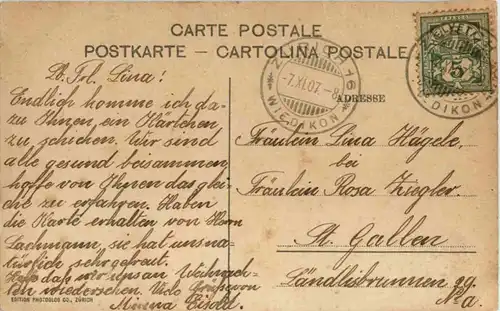 CARTE POSTALE
POSTKARTE – CARTOLINA POSTALE
Lb. Frl. Lina!
Endlich komme ich da-
zu Ihnen, ein Kärtchen
zu schicken. Wir sind
alle gesund beisammen
hoffe von Ihnen das glei-
che zu erfahren. Haben
die Karte erhalten von Herrn
Lachmann, sie hat uns na-
türlich sehr gefreut.
das wir uns an Weihnach-
ten wiedersehen. Viele Grüsse von
Minna
EDITION PHOTOGLOB CO., ZÜRICH
-7.XI.07.-8
WIEDIKON
ADRESSE
5
DIKON
Fräulein Lina Hägele
bei
Fräulein Rosa Ziegler
St. Gallen
Ländlisbrunnen 29.